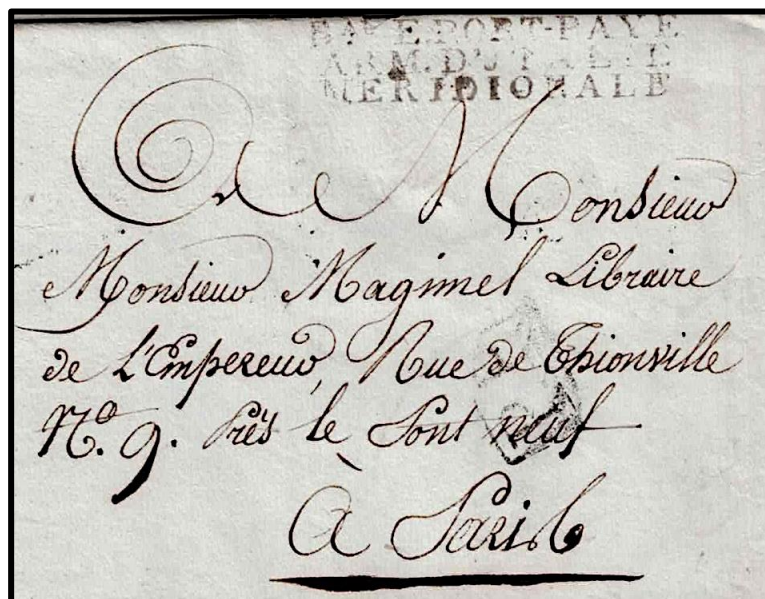 PORT-PAYE
ARM. D'ITALIE
MERIDIONALE
A Monsieur
Monsieur Magimel Libraire
de L'Empereur, Rue de Thionville
N.o 9. Près le Pont neuf
À Paris